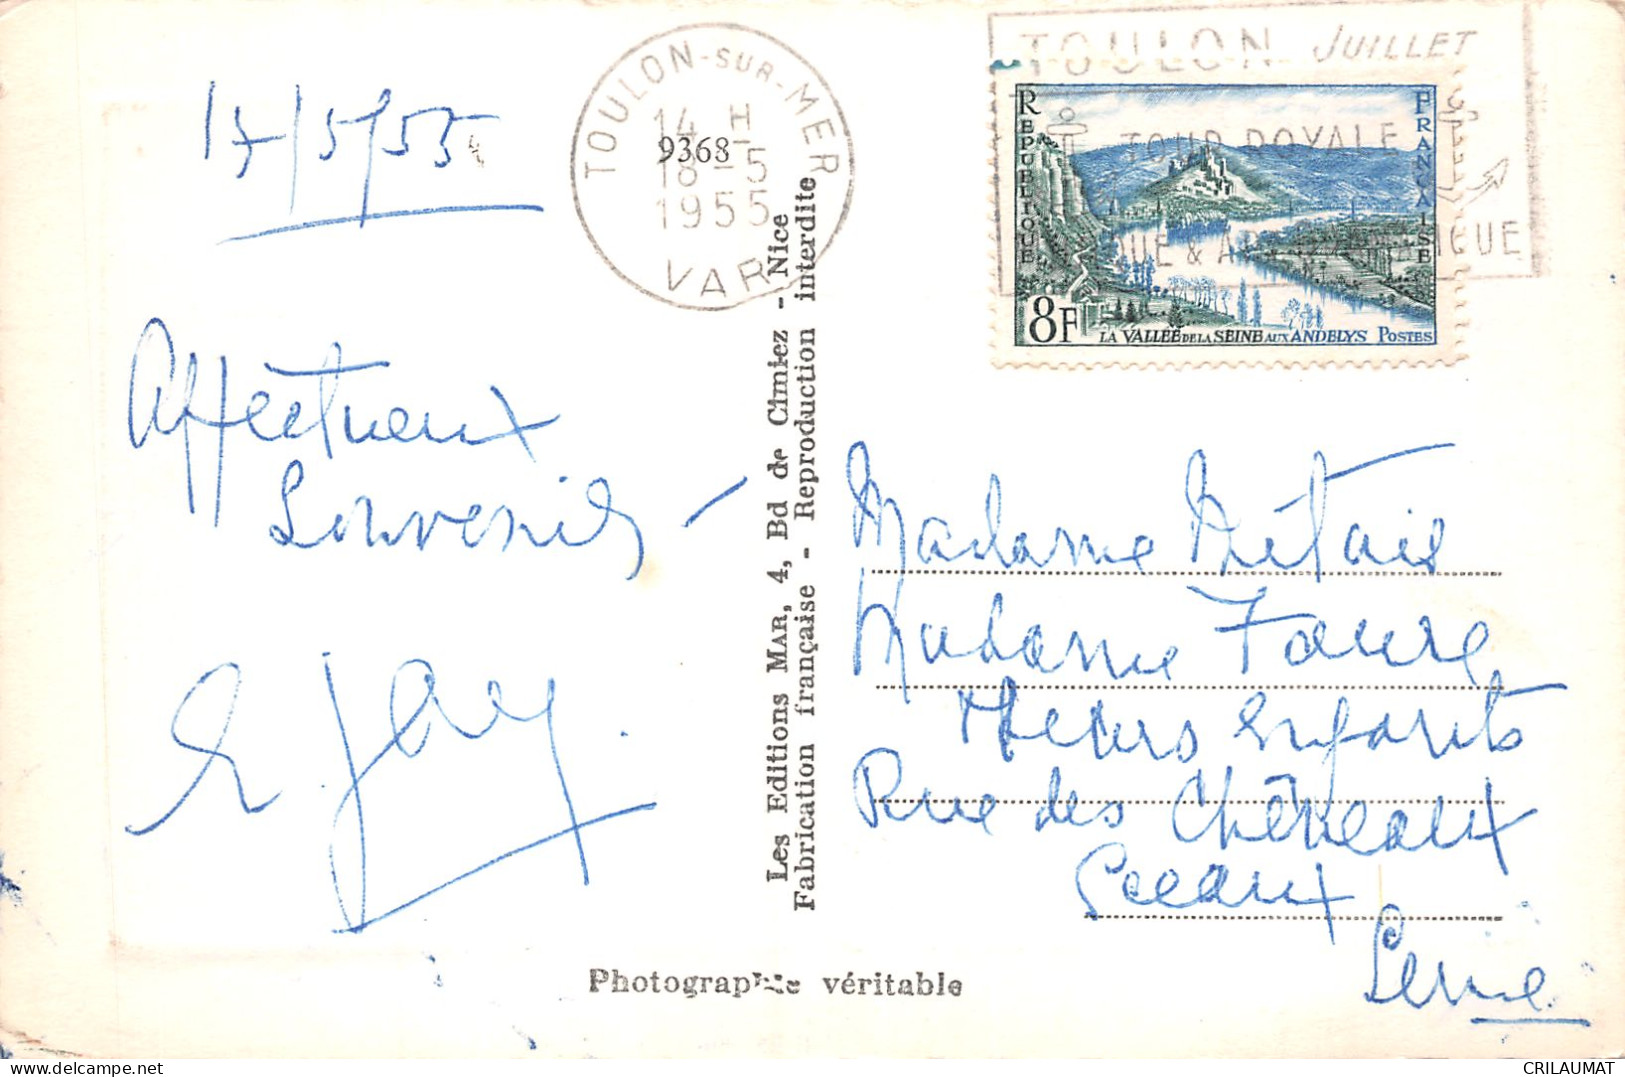 17/5/55
Affectueux
Souvenirs -
E. Jay.
TOULON-SUR-MER
14 H
9368
18-5
1955
VAR
Les Editions MAR, 4, Bd de Cimiez - Nice
Fabrication française - Reproduction interdite
Photographie véritable
TOULON JUILLET
TOUR ROYALE
QUE &
REPUBLIQUE FRANÇAISE
8F LA VALLÉE DE LA SEINE AUX ANDELYS POSTES
Madame Métais
Madame Faure
& leurs enfants
Rue des Chéneaux
Sceaux
Seine
CRILAUMAT